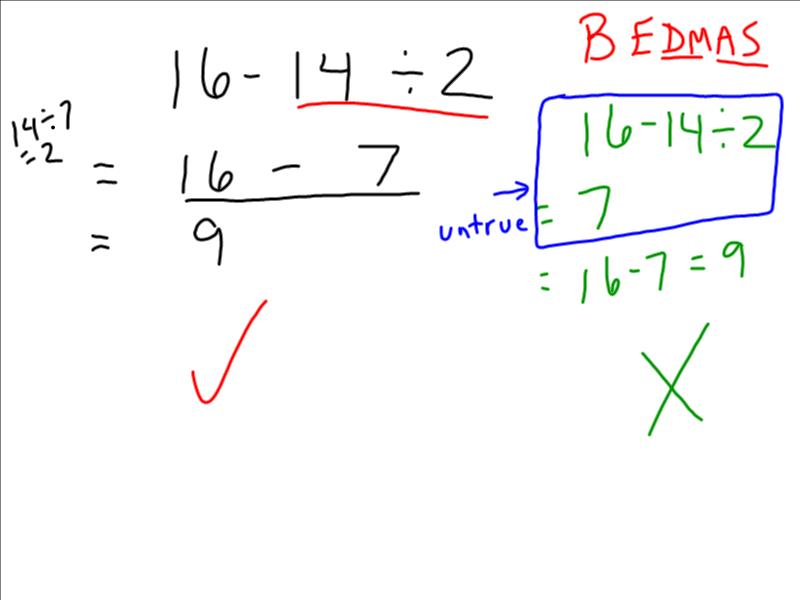 16 - 14 ÷ 2
14 ÷ 7
= 2
= 16 - 7
= 9
BEDMAS
16 - 14 ÷ 2
= 7
untrue
= 16 - 7 = 9